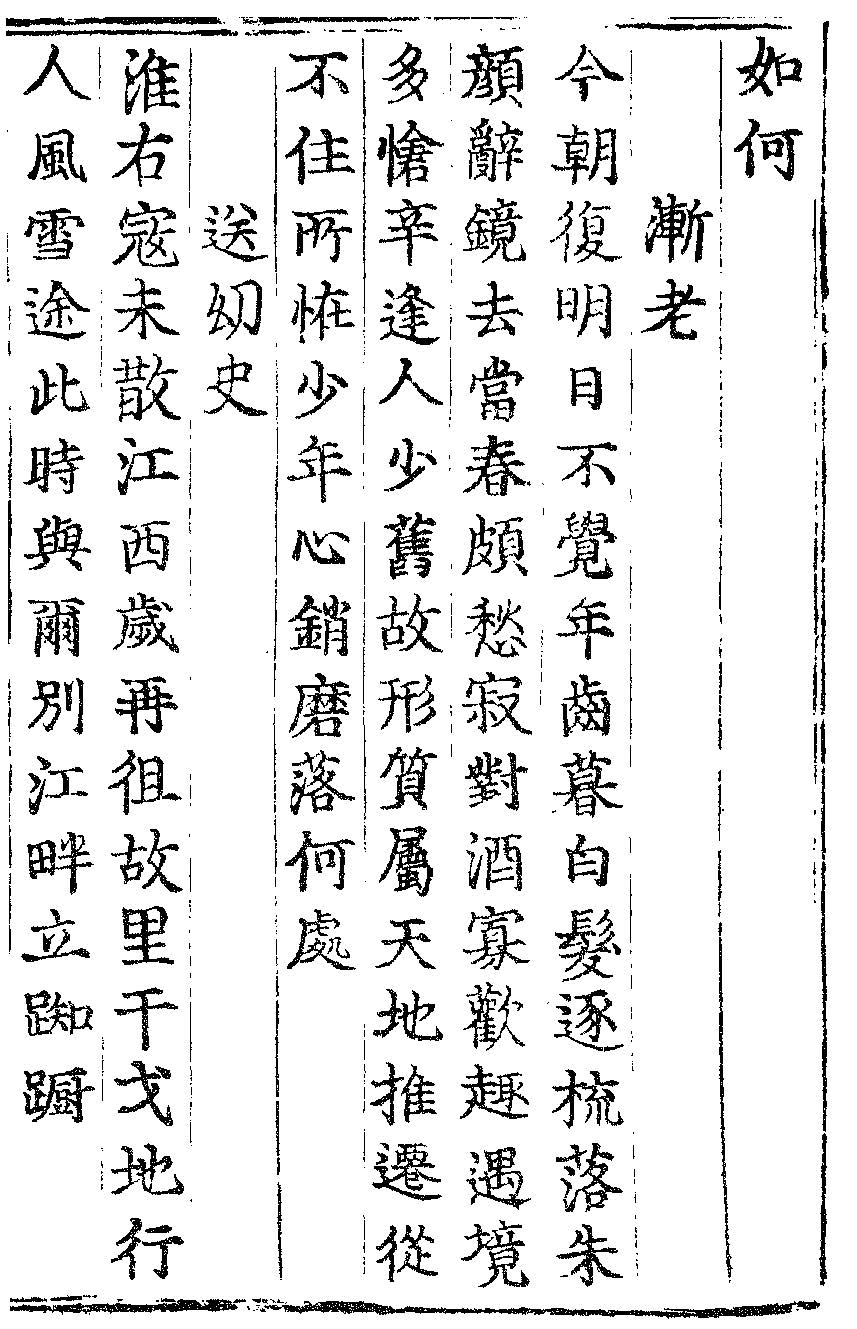 如何
漸老
今朝復明日不覺年齒暮白髮逐梳落朱
顔辭鏡去當春頗愁寂對酒寡歡趣遇境
多愴辛逢人少舊故形質屬天地推遷從
不住所恠少年心銷磨落何處
送幼史
淮右寇未散江西歲再徂故里干戈地行
人風雪途此時與爾別江畔立踟蹰